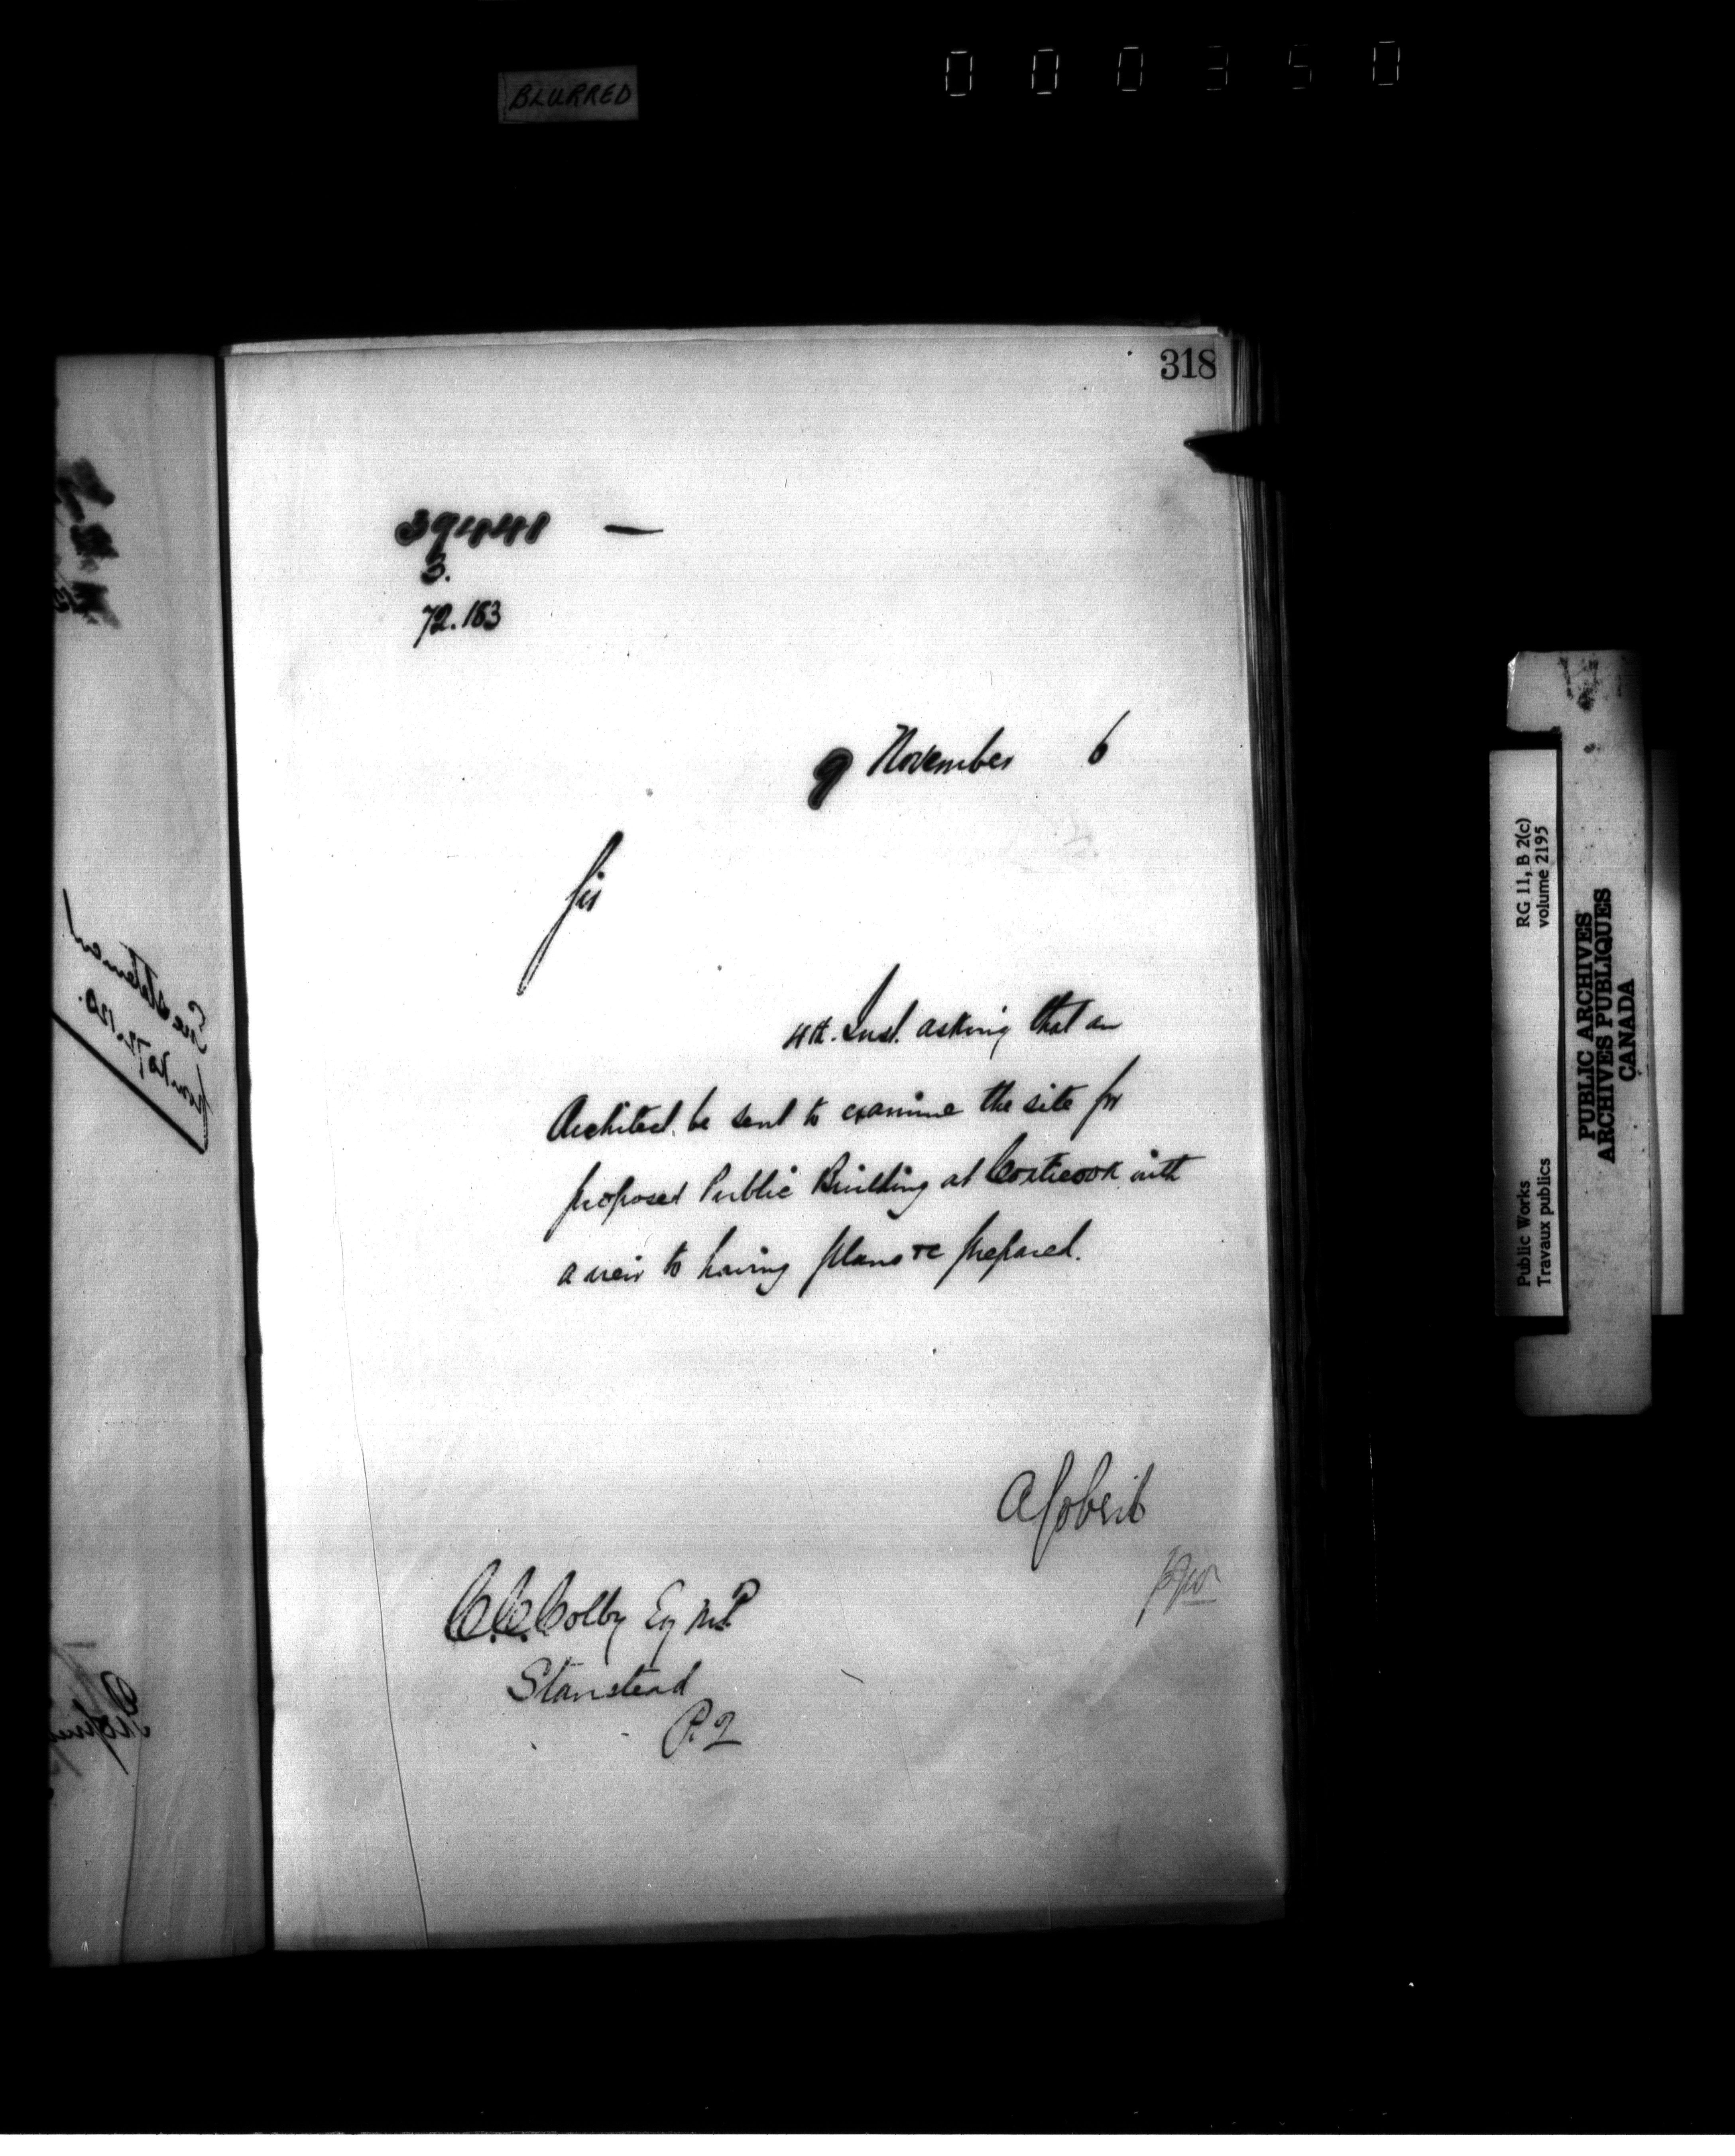 BLURRED
000350
318
39441 —
3.
72.183
9 November 6
Sir
4th. Inst. asking that an
Architect be sent to examine the site for
proposed Public Building at Coaticook with
a view to having plans &c prepared.
A Gobeil
C. C. Colby Esq M.P.
Stanstead
P. Q
RG 11, B 2(c)
volume 2195
Public Works
Travaux publics
PUBLIC ARCHIVES
ARCHIVES PUBLIQUES
CANADA
See Statement
from No 72.120.